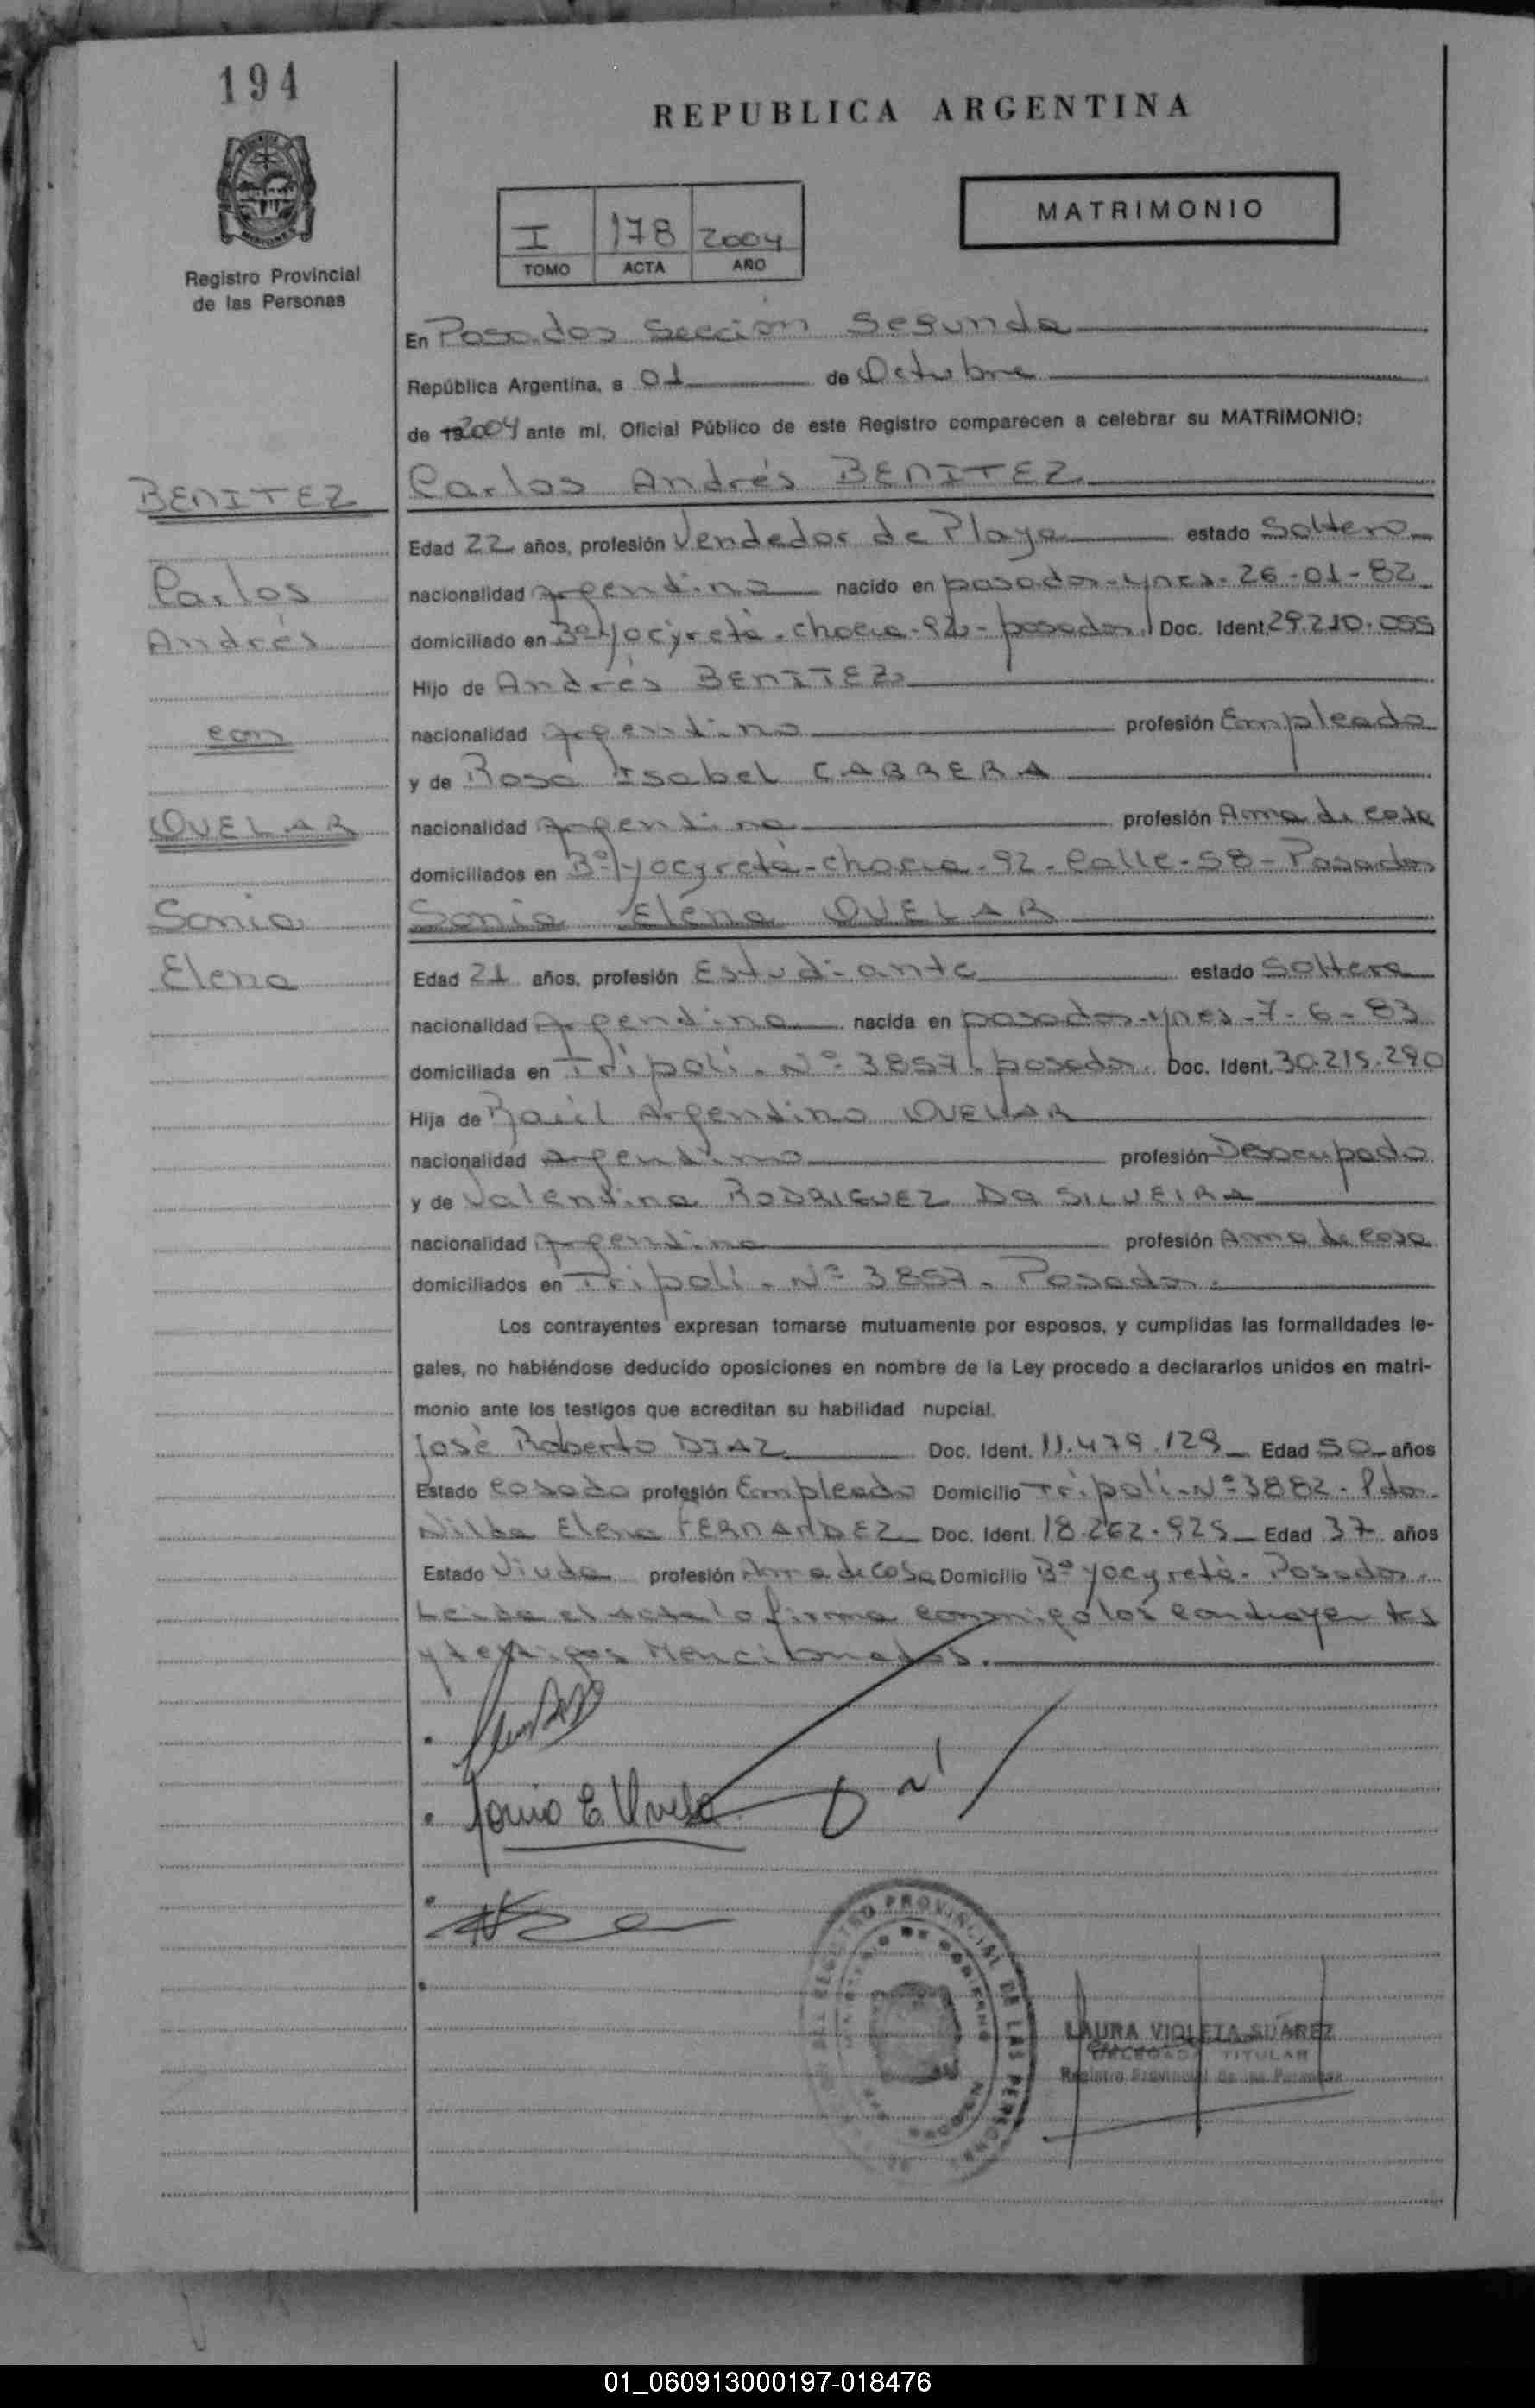 194
REPUBLICA ARGENTINA
MATRIMONIO
I 178 2004
TOMO ACTA AÑO
Registro Provincial
de las Personas
En Posadas Sección Segunda
República Argentina, a 01 de Octubre
de 192004 ante mí, Oficial Público de este Registro comparecen a celebrar su MATRIMONIO:
BENITEZ
Carlos
Andrés
con
OVELAR
Sonia
Elena
Carlos Andrés BENITEZ
Edad 22 años, profesión Vendedor de Playa estado Soltero
nacionalidad Argentina nacido en posadas - mnes - 26-01-82
domiciliado en Bº Yacyretá - chacra - 92 - posadas. Doc. Ident. 29.210.055
Hijo de Andrés BENITEZ
nacionalidad Argentino profesión Empleado
y de Rosa Isabel CABRERA
nacionalidad Argentina profesión Ama de casa
domiciliados en Bº Yacyretá - chacra - 92 - Calle - 58 - Posadas
Sonia Elena OVELAR
Edad 21 años, profesión Estudiante estado Soltera
nacionalidad Argentina nacida en posadas - mnes - 7-6-83
domiciliada en Tripoli - Nº 3857. posadas. Doc. Ident. 30.215.290
Hija de Raúl Argentino OVELAR
nacionalidad Argentino profesión Desocupado
y de Valentina RODRIGUEZ DA SILVEIRA
nacionalidad Argentina profesión Ama de Casa
domiciliados en Tripoli - Nº 3857 - Posadas.
Los contrayentes expresan tomarse mutuamente por esposos, y cumplidas las formalidades le-
gales, no habiéndose deducido oposiciones en nombre de la Ley procedo a declararlos unidos en matri-
monio ante los testigos que acreditan su habilidad nupcial.
José Roberto DIAZ Doc. Ident. 11.479.129 Edad 50 años
Estado Casado profesión Empleado Domicilio Tripoli - Nº 3882 - Pdas.
Nilda Elena FERNANDEZ Doc. Ident. 18.262.925 Edad 37 años
Estado Viuda profesión Ama de Casa Domicilio Bº Yacyretá - Posadas.
Leida el acta la firma conmigo los Contrayentes
y testigos Mencionados.
Sonia E. Ovelar
REGISTRO PROVINCIAL DE LAS PERSONAS
LAURA VIOLETA SUAREZ
DELEGADA TITULAR
Registro Provincial de las Personas
01_060913000197-018476